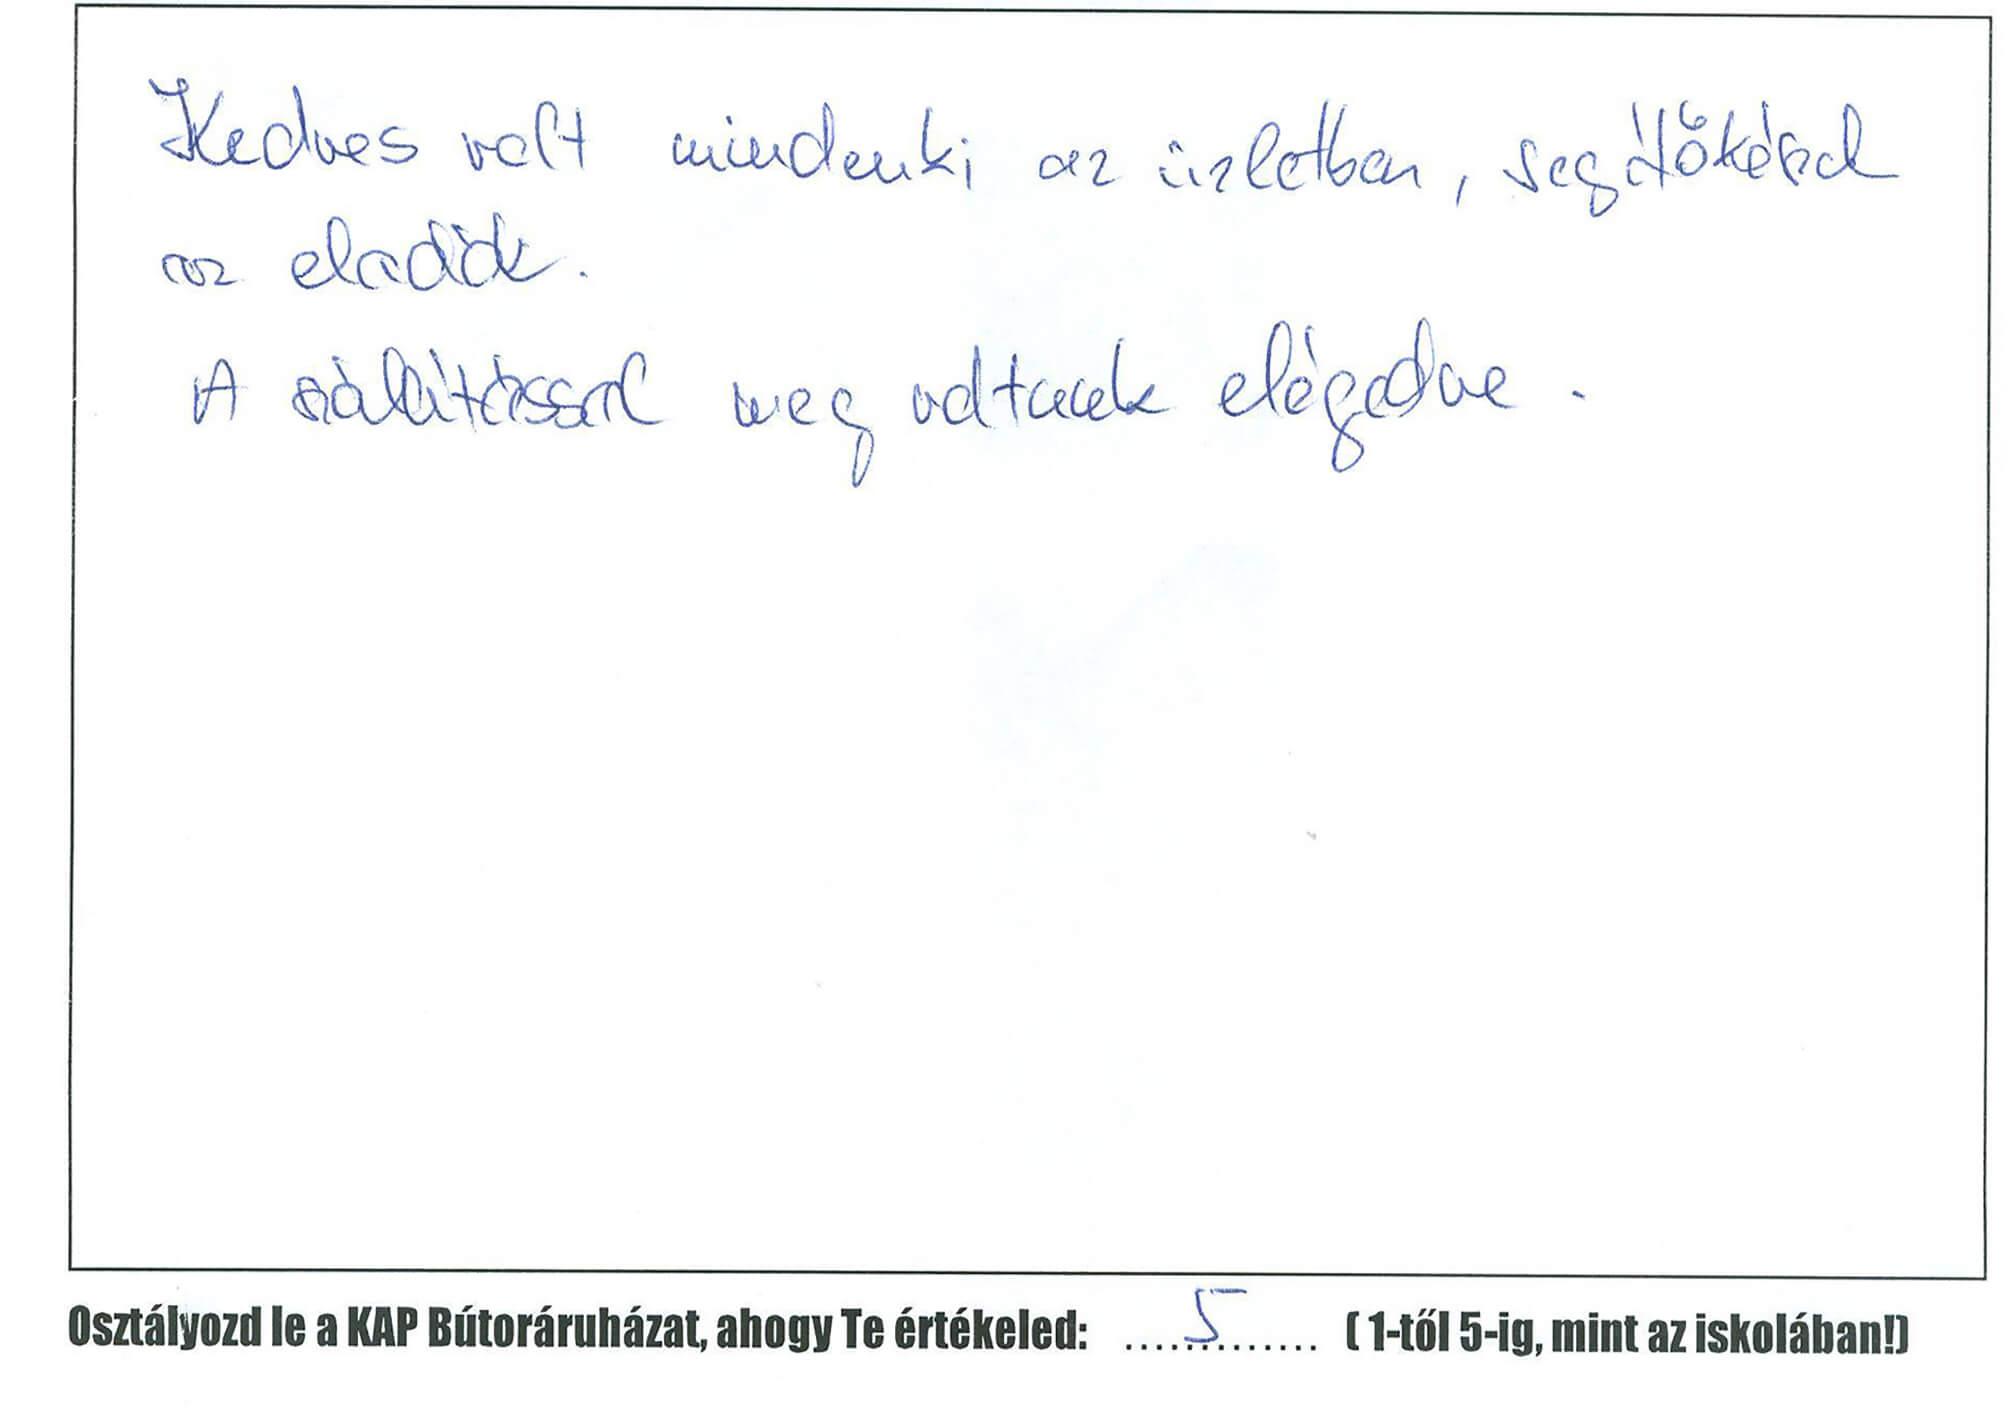 Kedves volt mindenki az üzletben, segítőkészek
az eladók.
A szállítással meg voltunk elégedve.
Osztályozd le a KAP Bútoráruházat, ahogy Te értékeled: .....5....... ( 1-től 5-ig, mint az iskolában!)